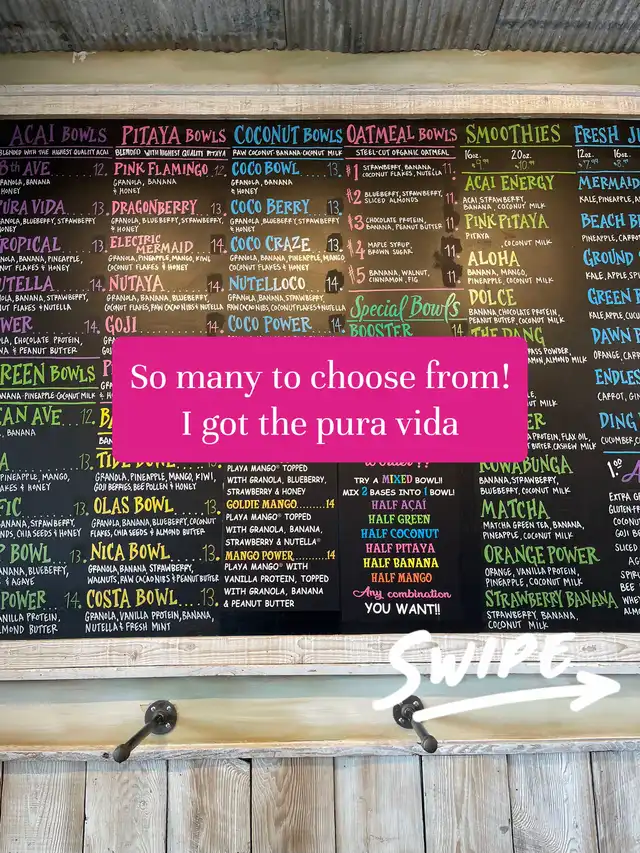 ACAI BOWLS
BLENDED WITH THE HIGHEST QUALITY ACAI
8th AVE 12.
GRANOLA, BANANA
HONEY
PURA VIDA 13.
GRANOLA, BLUEBERRY, STRAWBERRY
HONEY
TROPICAL 13.
NOLA, BANANA, PINEAPPLE,
NUT FLAKES & HONEY
UTELLA 14.
OLA, BANANA, STRAWBERRY,
UT FLAKES & NUTELLA
WER 14.
LA, CHOCOLATE PROTEIN,
NA & PEANUT BUTTER
REEN BOWLS
BANANA·PINEAPPLE·COCONUT MILK
AN AVE 12.
, BANANA
A 13.
PINEAPPLE, MANGO,
AKES & HONEY
FIC 13.
ANANA, STRAWBERRY,
NDS, CHIA SEEDS & HONEY
P BOWL 13.
ANANA, BLUEBERRY,
& AGAVE
POWER 14.
VANILLA PROTEIN,
LMOND BUTTER
PITAYA BOWLS
BLENDED WITH HIGHEST QUALITY PITAYA
PINK FLAMINGO 12.
GRANOLA, BANANA
& HONEY
DRAGONBERRY 13.
GRANOLA, BLUEBERRY, STRAWBERRY
& HONEY
ELECTRIC
MERMAID 14.
GRANOLA, PINEAPPLE, MANGO, KIWI
COCONUT FLAKES & HONEY
NUTAYA 14.
GRANOLA, BANANA, BLUEBERRY,
COCONUT FLAKES, RAW CACAO NIBS & NUTELLA
GOJI
TIDE BOWL 13.
GRANOLA, PINEAPPLE, MANGO, KIWI,
GOJI BERRIES, BEE POLLEN & HONEY
OLAS BOWL 13.
GRANOLA, BANANA, BLUEBERRY, COCONUT
FLAKES, CHIA SEEDS & ALMOND BUTTER
NICA BOWL 13.
GRANOLA, BANANA, STRAWBERRY,
WALNUTS, RAW CACAO NIBS & PEANUT BUTTER
COSTA BOWL 13.
GRANOLA, VANILLA PROTEIN, BANANA,
NUTELLA & FRESH MINT
COCONUT BOWLS
RAW COCONUT·BANANA·COCONUT MILK
COCO BOWL 13.
GRANOLA, BANANA
& HONEY
COCO BERRY 13.
GRANOLA, BLUEBERRY, STRAWBERRY
& HONEY
COCO CRAZE 13.
GRANOLA, BANANA, PINEAPPLE, MANGO
COCONUT FLAKES & HONEY
NUTELLOCO 14.
GRANOLA, BANANA, STRAWBERRY,
RAW CACAO NIBS, COCONUT FLAKES & NUTELLA
COCO POWER 14.
PLAYA MANGO® TOPPED
WITH GRANOLA, BLUEBERRY,
STRAWBERRY & HONEY
GOLDIE MANGO 14
PLAYA MANGO® TOPPED
WITH GRANOLA, BANANA,
STRAWBERRY & NUTELLA®
MANGO POWER 14
PLAYA MANGO® WITH
VANILLA PROTEIN, TOPPED
WITH GRANOLA, BANANA
& PEANUT BUTTER
OATMEAL BOWLS
STEEL-CUT ORGANIC OATMEAL
#1 STRAWBERRY, BANANA,
COCONUT FLAKES, NUTELLA 11.
#2 BLUEBERRY, STRAWBERRY,
SLICED ALMONDS 11.
#3 CHOCOLATE PROTEIN,
BANANA, PEANUT BUTTER 11.
#4 MAPLE SYRUP,
BROWN SUGAR 11.
#5 BANANA, WALNUT,
CINNAMON, FIG 11.
Special Bowls
BOOSTER 14.
TRY A MIXED BOWL!!
MIX 2 BASES INTO 1 BOWL!
HALF AÇAÍ
HALF GREEN
HALF COCONUT
HALF PITAYA
HALF BANANA
HALF MANGO
Any combination
YOU WANT!!
SMOOTHIES
16oz. 20oz.
ACAI ENERGY
ACAI, STRAWBERRY,
BANANA, COCONUT MILK
PINK PITAYA
PITAYA
COCONUT MILK
ALOHA
BANANA, MANGO,
PINEAPPLE, COCONUT MILK
DOLCE
BANANA, CHOCOLATE PROTEIN,
PEANUT BUTTER, COCONUT MILK
KOWABUNGA
BANANA, STRAWBERRY,
BLUEBERRY, COCONUT MILK
MATCHA
MATCHA GREEN TEA, BANANA,
PINEAPPLE, COCONUT MILK
ORANGE POWER
ORANGE, VANILLA PROTEIN,
PINEAPPLE, COCONUT MILK
STRAWBERRY BANANA
STRAWBERRY, BANANA,
COCONUT MILK
FRESH JU
12oz. 16oz.
MERMAID
KALE, SUGAR
BEACH B
PINEAPPLE,
GROUND
KALE, APPLE,
GREEN
KALE, APPLE,
DAWN
ORANGE,
ENDLES
CARROT,
DING
CUCUMBER,
So many to choose from!
I got the pura vida
SWIPE